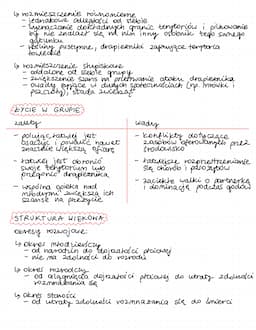 ↳ rozmieszczenie równomierne
- jednakowe odległości od siebie
- wyznaczanie dokładnych granic terytoriów i pilnowanie
by nie znalazł się na nim inny osobnik tego samego
gatunku
- rośliny pustynne, drapieżniki zajmujące terytoria
łowieckie
↳ rozmieszczenie skupiskowe
- oddalone od siebie grupy
- zwiększenie szans na przetrwanie ataku drapieżnika
- owady żyjące w dużych społecznościach (np. mrówki i
pszczoły), stada zwierząt
ŻYCIE W GRUPIE
zalety
- polując łatwiej jest
osaczyć i powalić nawet
znacznie większą ofiarę
- łatwiej jest obronić
swoje terytorium lub
przegonić drapieżnika
- wspólna opieka nad
młodymi zwiększa ich
szanse na przeżycie
wady
- konflikty dotyczące
zasobów oferowanych przez
środowisko
- łatwiejsze rozprzestrzenianie
się chorób i pasożytów
- zaciekłe walki o partnerkę
i dominację podczas godów
STRUKTURA WIEKOWA
okresy rozwojowe:
↳ okres młodzieńczy
- od narodzin do dojrzałości płciowej
- nie ma zdolności do rozrodu
↳ okres rozrodczy
- od osiągnięcia dojrzałości płciowej do utraty zdolności
rozmnażania się
↳ okres starości
- od utraty zdolności rozmnażania się do śmierci